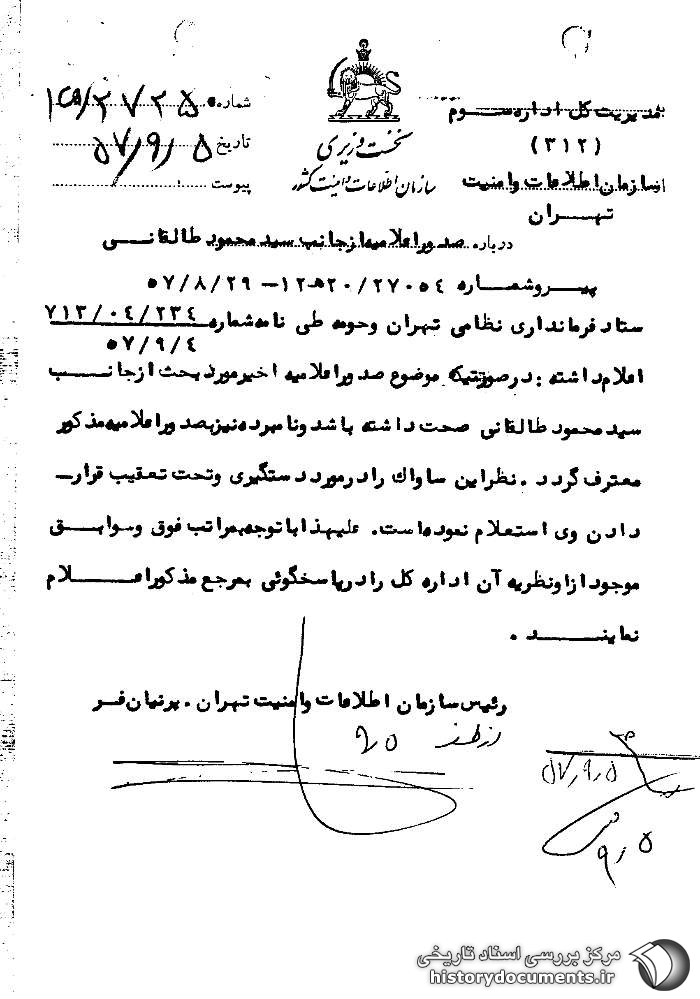 شماره ۱۵ﻫ/۲۷۲۵۰
تاریخ ۵۷/۹/۵
پیوست
نخست وزیری
سازمان اطلاعات و امنیت کشور
بمدیریت کل اداره سوم
(۳۱۲)
از سازمان اطلاعات و امنیت
تهران
درباره صدور اعلامیه از جانب سید محمود طالقانی
پیرو شماره ۲۷۰۵۴/۲۰ ه‍ ۱۲ - ۵۷/۸/۲۹
ستاد فرمانداری نظامی تهران و حومه طی نامه شماره ۷۱۳/۰۴/۲۳۴
۵۷/۹/۴
اعلام داشته : در صورتیکه موضوع صدور اعلامیه اخیر مورد بحث از جانب
سید محمود طالقانی صحت داشته باشد و نامبرده نیز بصدور اعلامیه مذکور
معترف گردد . نظر این ساواک را در مورد دستگیری و تحت تعقیب قرار
دادن وی استعلام نموده است . علیهذا با توجه بمراتب فوق و سوابق
موجود از او نظریه آن اداره کل را در پاسخگوئی بمرجع مذکور اعلام
نمایند .
رئیس سازمان اطلاعات و امنیت تهران . پرنیان فر
از طرف
۵۷/۹/۵
۹/۵
مرکز بررسی اسناد تاریخی
historydocuments.ir